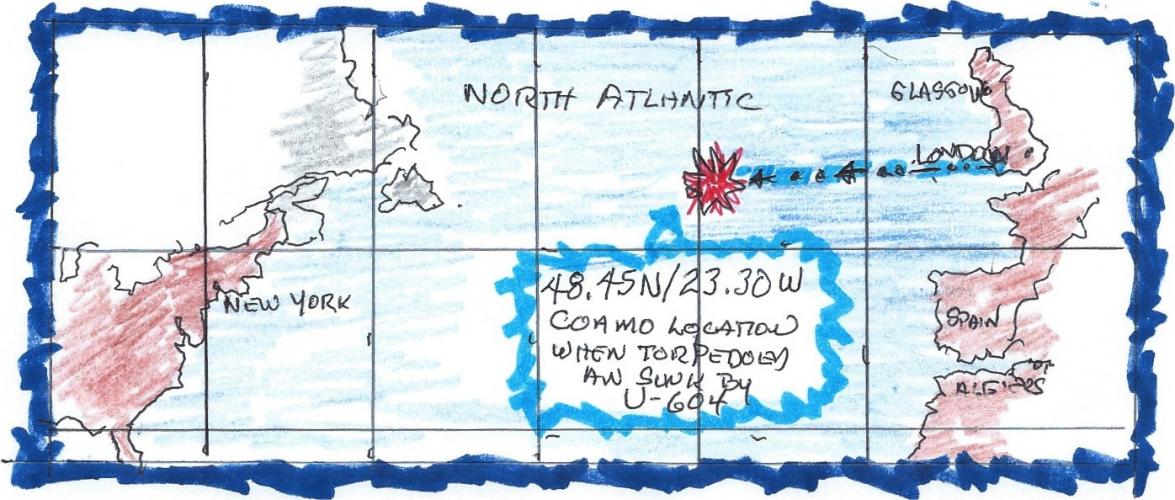 NORTH ATLANTIC
GLASGOW
LONDON
NEW YORK
48.45N/23.30W
COAMO LOCATION
WHEN TORPEDOED
AN SUNK BY
U-604
SPAIN
OF
ALGIERS